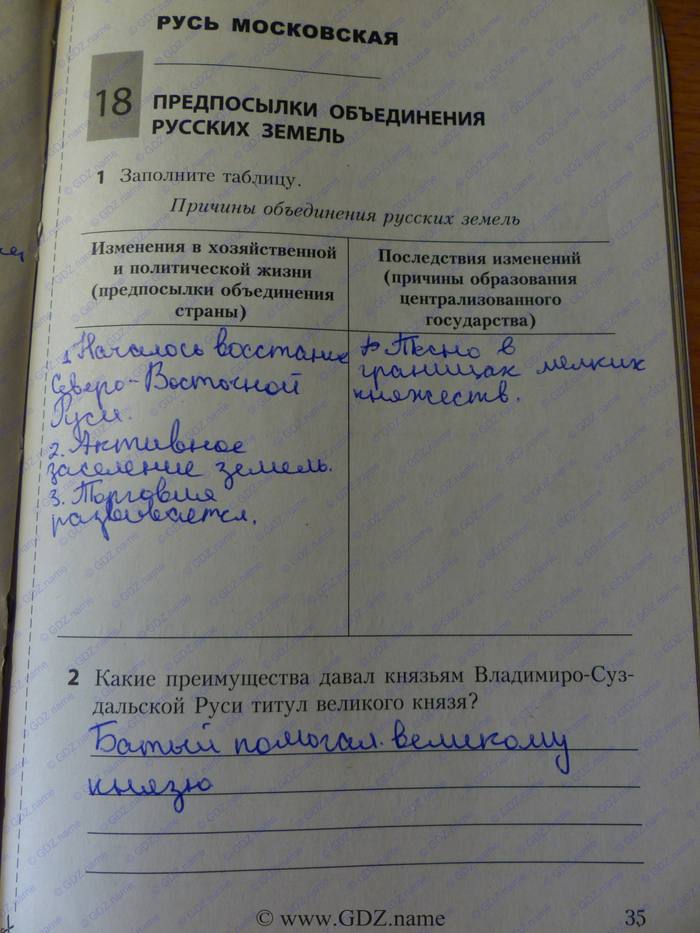 РУСЬ МОСКОВСКАЯ
18
ПРЕДПОСЫЛКИ ОБЪЕДИНЕНИЯ
РУССКИХ ЗЕМЕЛЬ
1 Заполните таблицу.
Причины объединения русских земель
Изменения в хозяйственной
и политической жизни
(предпосылки объединения
страны)
Последствия изменений
(причины образования
централизованного
государства)
1. Началось восстание
Северо-Восточной
Руси.
2. Активное
заселение земель.
3. Торговля
развивается.
Тесно в
границах мелких
княжеств.
2 Какие преимущества давал князьям Владимиро-Суз-
дальской Руси титул великого князя?
Батый помогал великому
князю
© www.GDZ.name
35